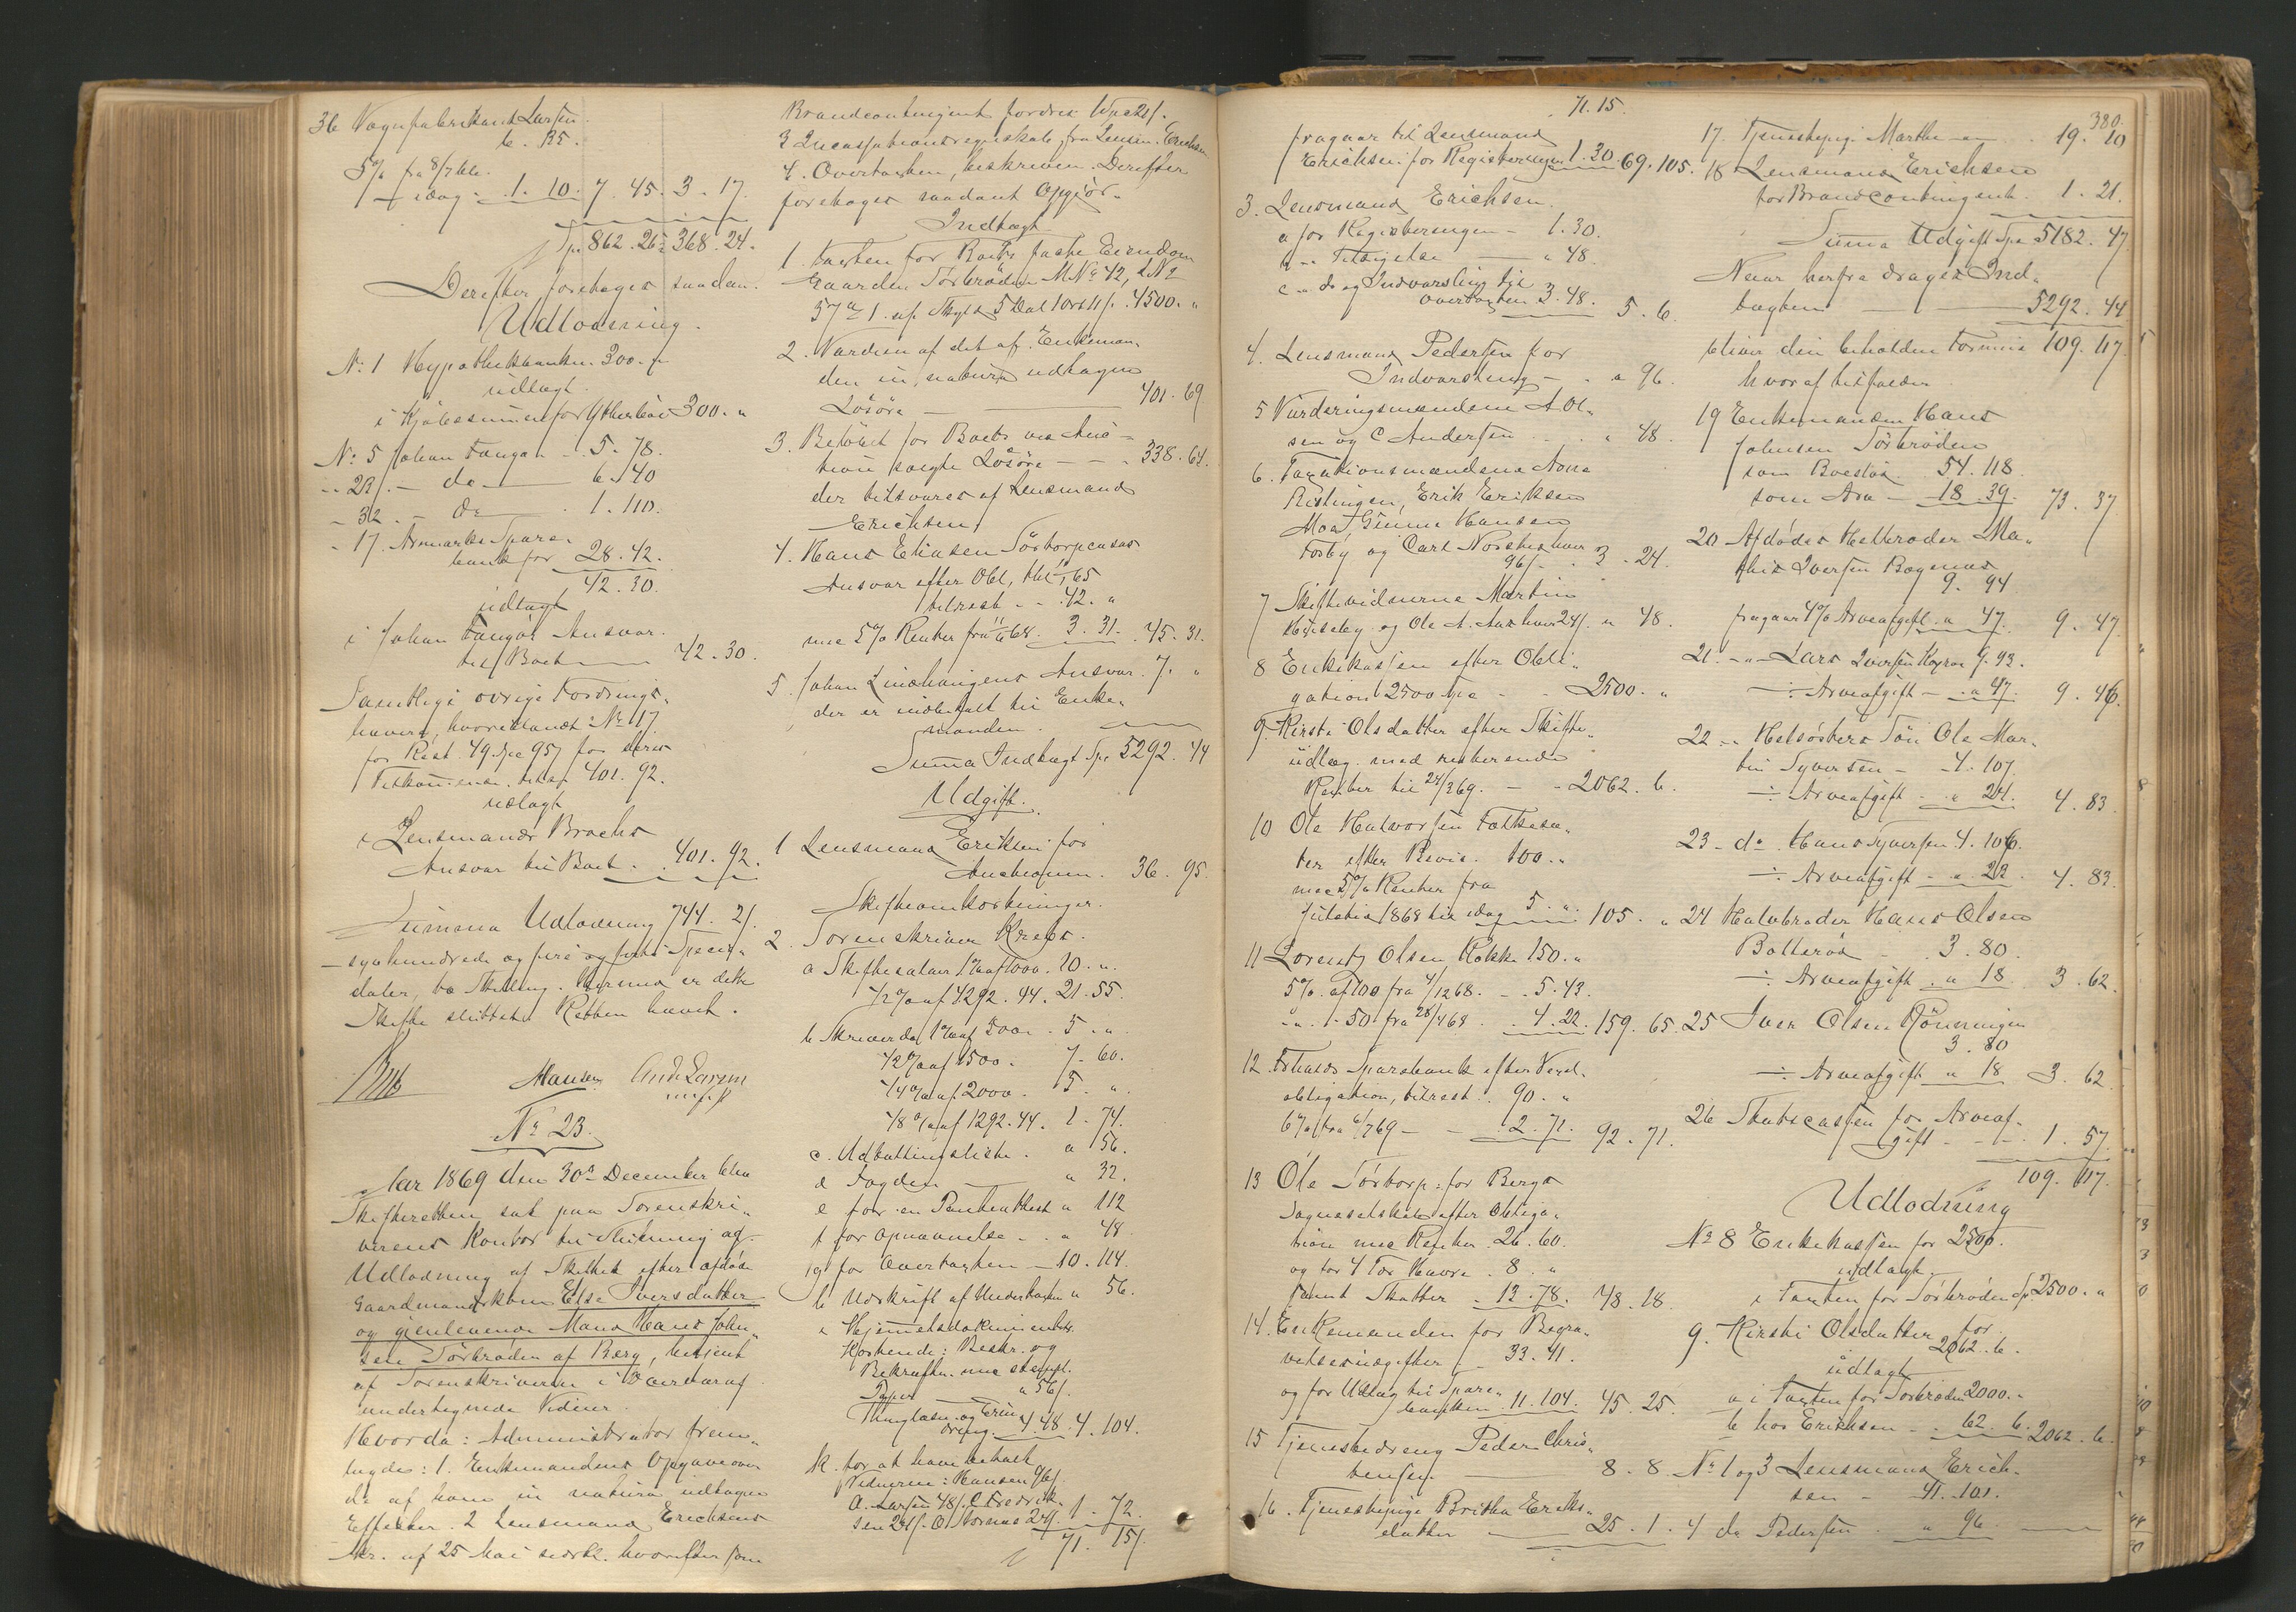 36 Vognfabrikant Larsen
5% fra 8/7
idag 1. 10. 7. 45. 3. 17.
Spd 862. 26. 368. 24.
Derefter foretages saadan
Udlodning.
No 1 Hypothekbanken 300. "
udlagt
i Kjøbesummen for 300. "
No 5 Johan - 5. 78.
" 22. - do - 6. 40
- 32. - do 1. 110.
- 17. Aremarks Spare-
bank for 28. 42.
42. 30.
udlagt
i Johan Ansvar
til Boet 42. 30.
Samtlige øvrige Fordrings-
havere, hvoriblandt No 17
for Rest 49 Spd 95 for deres
401. 92.
udlagt
i Lensmand Brochs
Ansvar til Boet. 401. 92.
Summa Udlodning 744. 2.
- syvhundrede og fire og firti Specie-
daler, to Skilling. Hermed er dette
Skifte sluttet. Retten hævet.
Hansen
No 23.
Aar 1869 den 30te December blev
Skifteretten sat paa Sorenskri-
verens Kontor til Slutning og
Udlodning af Skiftet efter afdøde
Gaardmandskone Else Iversdatter
og gjenlevende Mand Hans John-
sen Torbrøden af Berg, betjent
af Sorenskriveren i Overvær af
undertegnede Vidner.
Hvorda: Administrator frem-
lagde: 1. Enkemandens Opgave over
de af ham in natura udtagne
Effekter. 2 Lensmand Erichsens
Skr. af 25 Mai sidstl. hvorefter som
Brandcontingent fordres 1 Spd 21 s.
3 Incassationsregnskab fra Lensm. Erichsen
4. Overtaxten, beskreven. Derefter
foretages saadant Opgjør.
Indtægt
1. Taxten for Boets faste Eiendom
Gaarden Torbrøden MNo 42, LNo
57 a 1. af Skyld 5 Dal 1 ort 11 s. 4500. "
2. Værdien af det af Enkeman-
den in natura udtagne
Løsøre - 401. 69
3. Beløbet for Boets ved Auc-
tion solgte Løsøre - - 338. 64.
der tilsvares af Lensmand
Erichsen
4. Hans Eliasen
Ansvar efter Obl,
tilrest - - 42. "
med 5% Renter fra 11/6 68. 3. 31. 45. 31.
5. Johan Ansvar. 7. "
der er indbetalt til Enke-
manden
Summa Indtægt Spd 5292. 44
Udgift.
1 Lensmand Eriksen for
Auctionen. 36. 95.
Skifteomkostninger.
2. Sorenskriver Krebs.
a Skiftesalær 1% af 1000. 10. "
1/2% af 4292. 44. 21. 55.
b Skriverdal 1% af 500. 5. "
1/2% af 1500. 7. 60.
1/4% af 2000. 5. "
1/8% af 1292. 44. 1. 74.
c. Udbyttingsliste. " 56.
d Fogden " 32.
e for en Pantheattest " 112
f for Opnævnelse - " 48
g for Overtaxten - 10. 114.
h Udskrift af Undertaxten " 56.
i Hjemmelsdokumentets
Kostende: Beskr. og
Bekræft. med stempl.
Papir " 56.
Thinglæsn. og
4. 48. 4. 104.
k. for at have betalt
Vidnerne: Hansen 96 s.
A. Larsen 48 s. C Fredrik-
sen 24 s. 24 s. 1. 72.
71. 15.
71. 15.
380.
fragaar til Lensmand
Erichsen for Registeringen 1. 30. 69. 105.
3. Lensmand Erichsen.
a for Registeringen - 1. 30.
b - Tilsigelse - " 48.
c - do og Indvarsling til
Overtaxten 3. 48. 5. 6.
4. Lensmand Pedersen for
Indvarsling - " 96.
5 Vurderingsmændene A Ol-
sen og C Andersen " 48.
6. Taxationsmændene
Erik Eriksen
Gunne Hansen
og Carl hver
96 s. 3. 24.
7 Skiftevidnerne Martin
og Ole A. hver 24 s. " 48.
8 Enkekassen efter Obli-
gation 2500 Spd - 2500. "
9. Kirsti Olsdatter efter Skifte-
udlæg med resterende
Renter til 24/3 69. - - 2062. 6.
10 Ole Halvorsen
efter Bevis. 100. "
med 5% Renter fra
Juletid 1868 til idag 5. " 105. "
11 Lorentz Olsen Kokke 150. "
5% af 100 fra 4/12 68. - 5. 43.
- " - 50 fra 28/4 68. 4. 22. 159. 65.
12. Fr.halds Sparebank efter Vexel-
obligation, tilrest. 90. "
6% fra 6/7 69 - - 2. 71. 92. 71.
13 Ole Torborp for Bergs
Sogneselskab efter Obliga-
tion med Renter. 26. 60.
og for 4 Tdr Havre 8. "
samt Skatter 13. 78. 48. 18.
14. Enkemanden for Begra-
velsesudgifter 33. 41.
og for Udlæg til Spare-
banken 11. 104. 45. 25
15 Tjenestedreng Peder Chris-
tensen 8. 8.
16. Tjenestepige Britha Eriks-
datter 25. 1.
17. Tjenestepige Marthe 19. 10
18 Lensmand Erichsen
for Brandcontingent. 1. 21.
Summa Udgift Spd 5182. 47
Naar herfra drages Ind-
tægten 5292. 44
bliver den beholdne Formue 109. 117.
hvoraf tilfalder
19 Enkemanden Hans
Johnsen Torbrøden
som Boeslod 54. 118.
som Arv - 18. 39. 73. 37
20. Afdødes Helbroder Ma-
this Iversen
9. 94
fragaar 4% Arveafgift " 47. 9. 47
21. - " - Lars Iversen 9. 93.
÷ Arveafgift - " 47. 9. 46.
22. - Helsøsters Søn Ole Mar-
tin Syversen - 4. 107.
÷ Arveafgift - " 24. 4. 83
23 - do Hans Syversen 4. 106.
÷ Arveafgift - " 23. 4. 83.
24 Halvbroder Hans Olsen
3. 80.
÷ Arveafgift. " 18. 3. 62.
25 Iver Olsen Rønningen
3. 80
÷ Arveafgift " 18 3. 62.
26 Statscassen for Arveaf-
gift - - - 1. 57.
109. 117.
Udlodning
No 8 Enkekassen for 2500.
udlagt
i Taxten for Torbrøden Spd 2500. "
9. Kirsti Olsdatter for
2062. 6.
udlagt
a i Taxten for Torbrøden 2000. "
b hos Erichsen - 62. 6. 2062. 6.
No 1 og 3 Lensmand Erich-
sen - 41. 101.
4 do Pedersen " 96